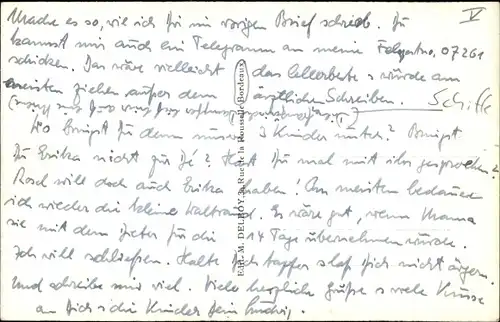 Mache es so, wie ich Dir im vorigen Brief schrieb. Du
V
kannst mir auch ein Telegramm an meine Feldpostnr. 07261
schicken. Das wäre vielleicht das allerbeste & würde am
meisten ziehen außer dem ärztlichen Schreiben.
Wo bringst Du denn unsere 3 Kinder unter? Bringst
Du Erika nicht zur Hast Du mal mit ihr gesprochen?
Rosel will doch auch Erika haben! Am meisten bedauere
ich wieder die kleine Waltraud. Es wäre gut, wenn Mama
sie mit dem Peter für die 14 Tage übernehmen würde.
Ich will schließen. Halte Dich tapfer & laß Dich nicht ärgern
und schreibe mir viel. Viele herzliche Grüße & viele Küsse
an Dich & die Kinder Dein Ludwig.
Edit. M. DELBOY, Rue de la Rousselle Bordeaux